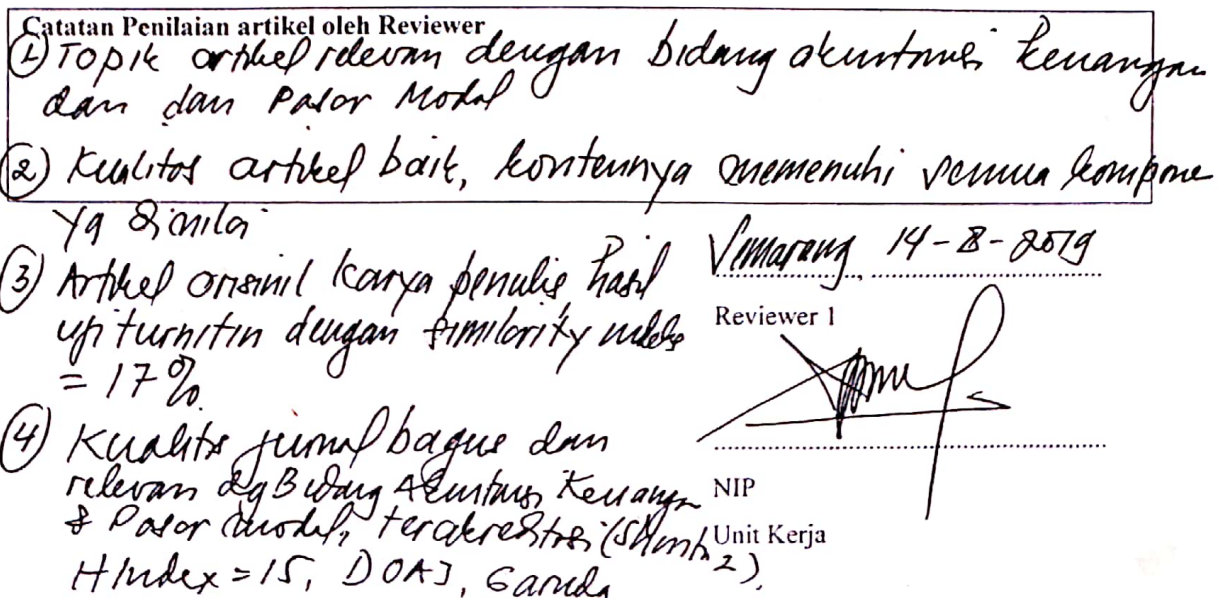 Catatan Penilaian artikel oleh Reviewer
① Topik artikel relevan dengan bidang akuntansi keuangan
dan dan Pasar Modal
② Kualitas artikel baik, kontennya memenuhi semua kompone
yg dinilai
③ Artikel orisinil karya penulis hasil
uji turnitin dengan similarity indeks
= 17%
④ Kualitas jurnal bagus dan
relevan dg Bidang Akuntansi Keuangan
& Pasar modal, terakreditasi (Shinta 2),
H Index = 15, DOAJ, Garuda
Semarang, 14-8-2019
Reviewer 1
NIP
Unit Kerja